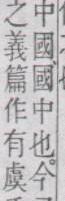 中國、國中也。今
之義篇作有虞